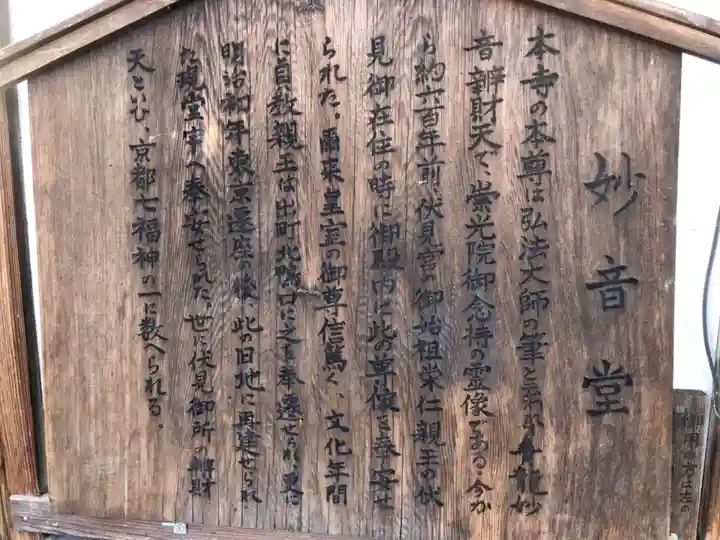 妙音堂
本寺の本尊は弘法大師の筆と云われる青龍妙
音辨財天で、崇光院御念持の霊像である。今か
ら約六百年前、伏見宮の御始祖栄仁親王の伏
見御在住の時に御殿内に此の尊像を奉安せ
られた。爾来皇室の御尊信篤く、文化年間
に貞敬親王は出町北鴨口に之を奉遷せられ、更に
明治初年東京遷座の後、此の旧地に再建せられ
た現堂宇へ奉安せられた。世に伏見御所の辨財
天といひ、京都七福神の一に数へられる。
御用の方は左の